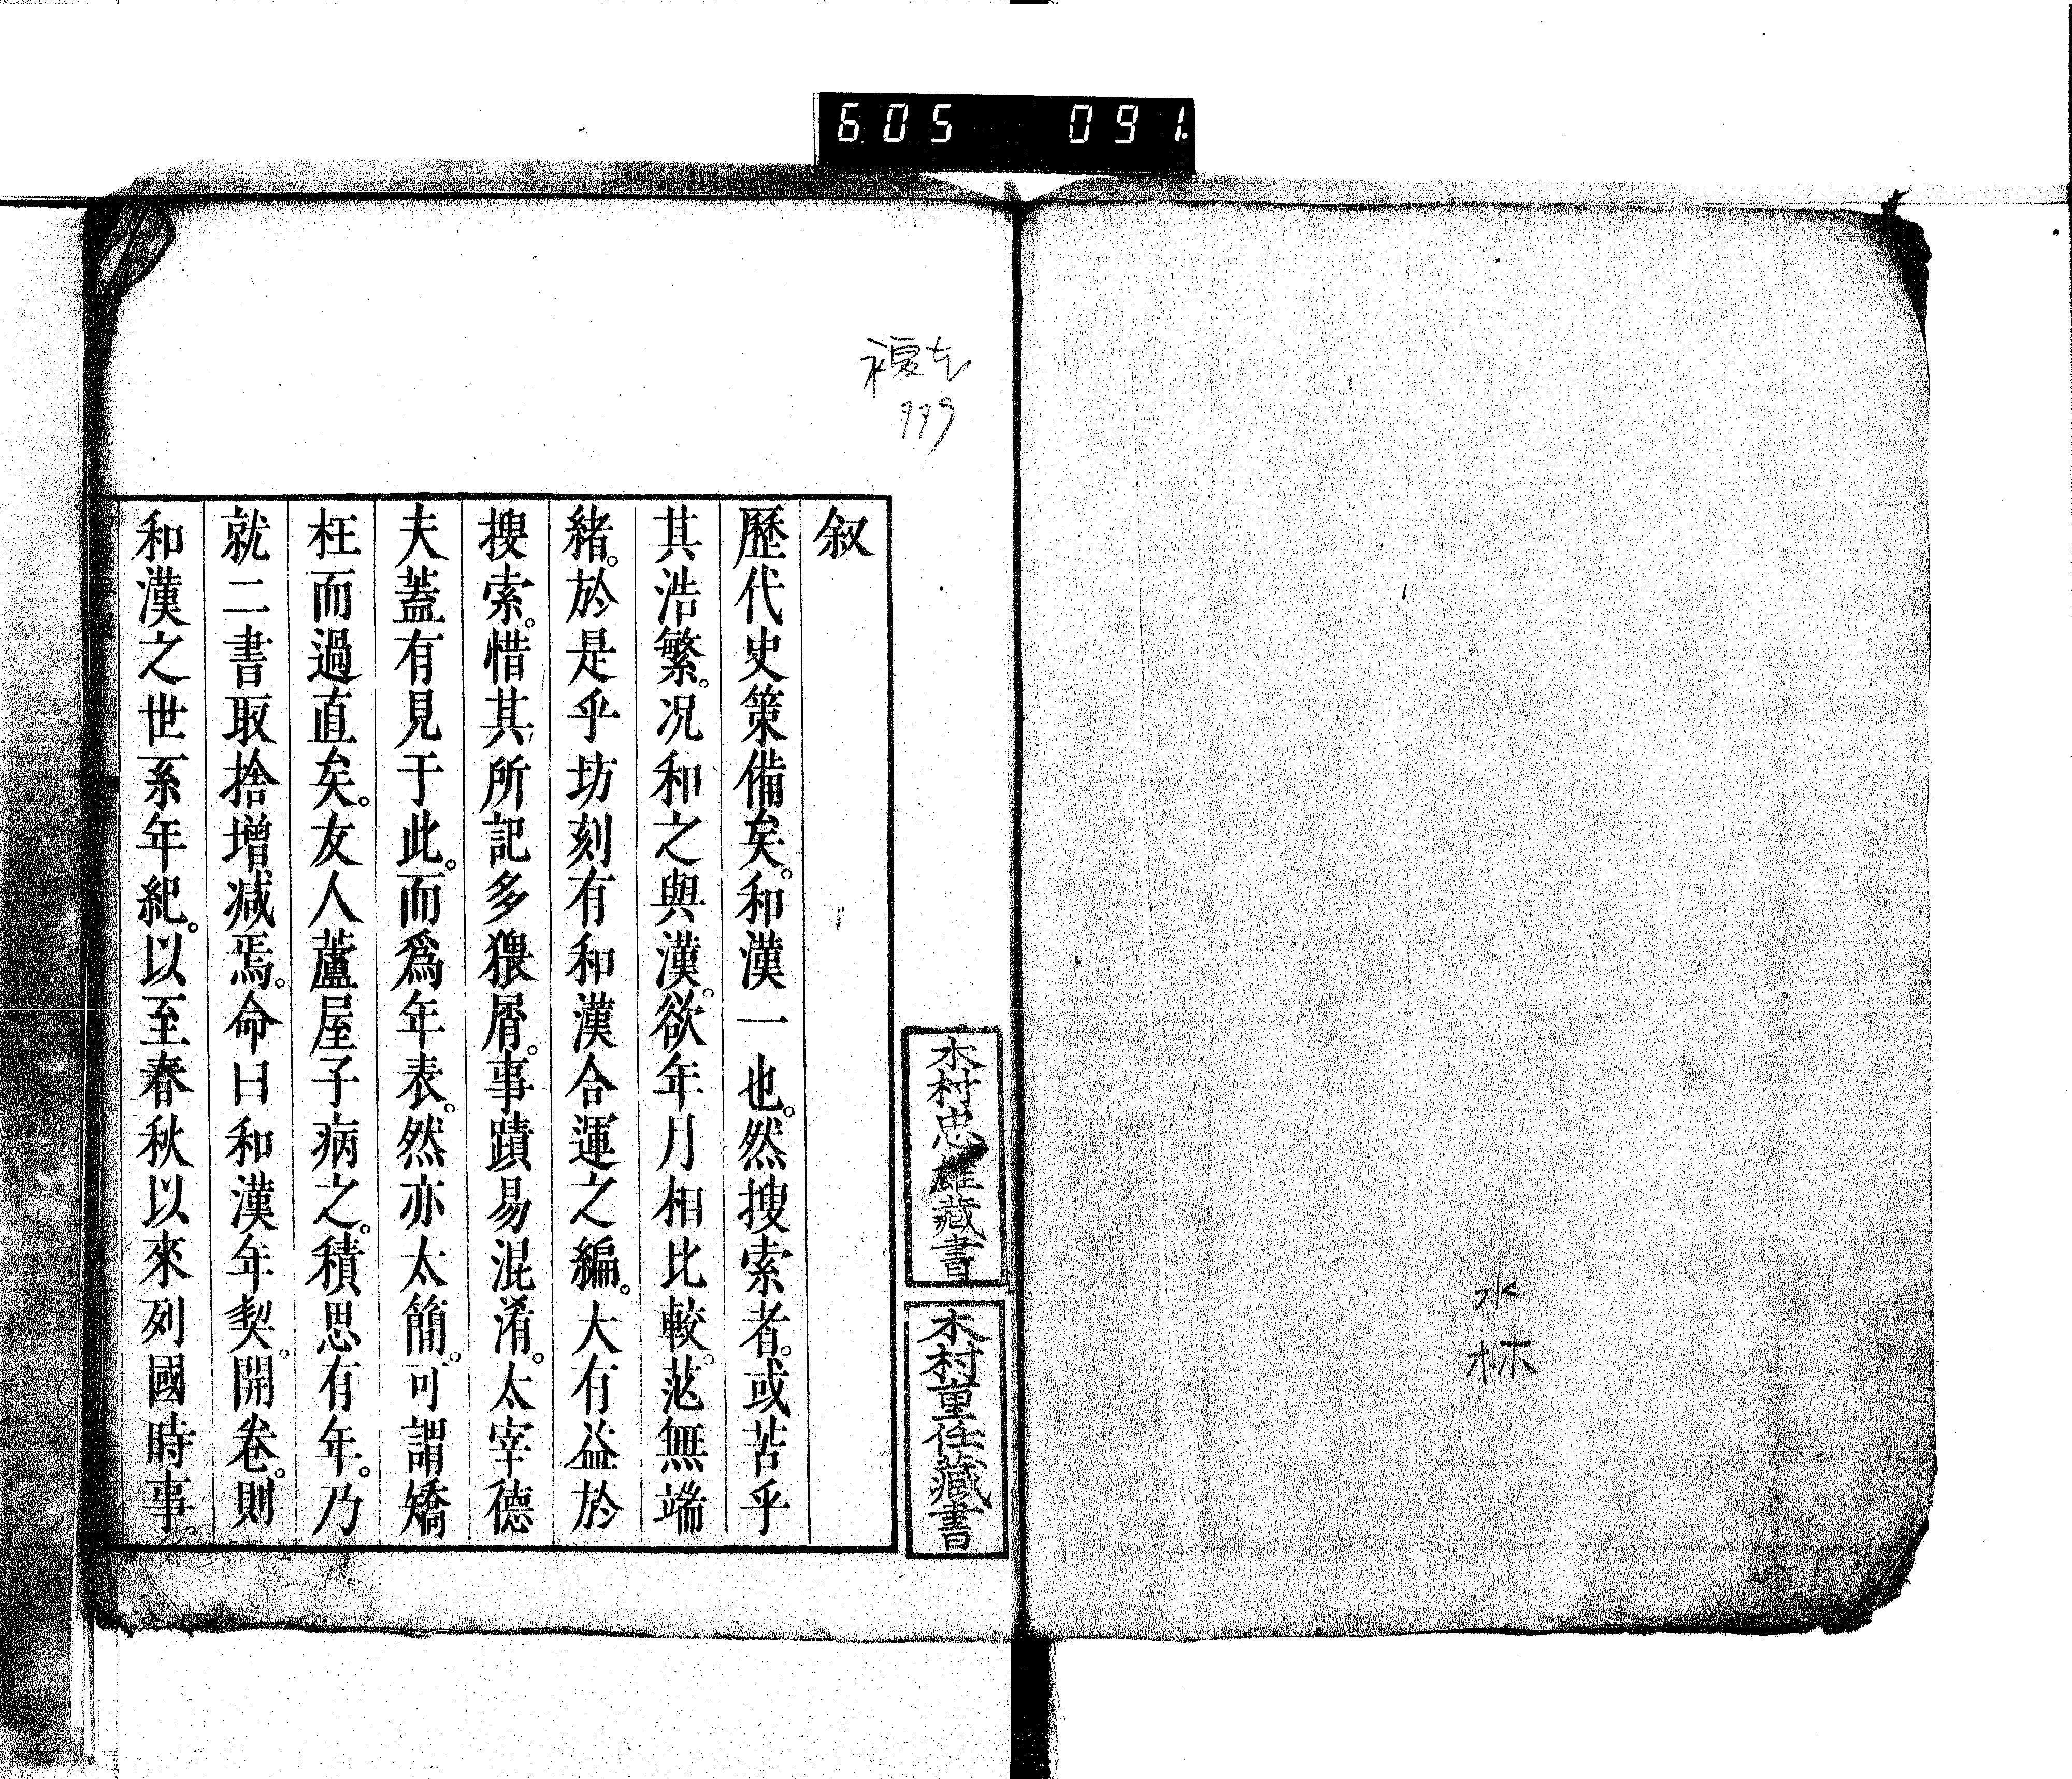 605 091
水
林
木村忠雄藏書
木村重任藏書
叙
歷代史策備矣。和漢一也。然搜索者。或苦乎
其浩繁。况和之與漢。欲年月相比較。茫無端
緒。於是乎坊刻有和漢合運之編。大有益於
搜索。惜其所記多猥屑。事蹟易混淆。太宰德
夫蓋有見于此。而爲年表。然亦太簡。可謂矯
枉而過直矣。友人蘆屋子病之。積思有年。乃
就二書取捨增减焉。命曰和漢年契。開卷。則
和漢之世系年紀。以至春秋以來列國時事。